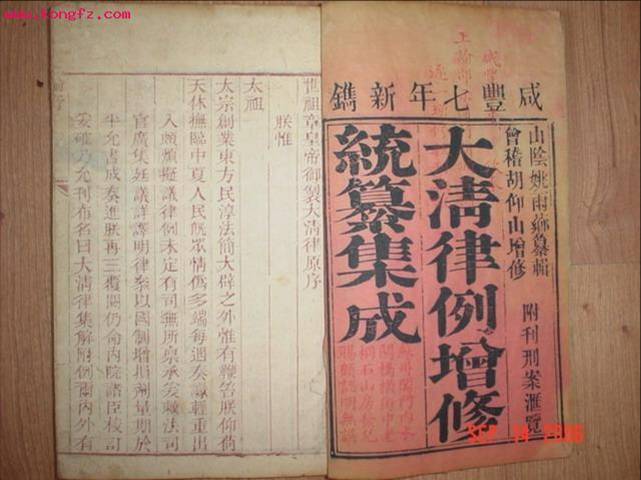 www.kongfz.com
咸豐七年新鐫
山陰姚雨薌纂輯
會稽胡仰山增修
附刊刑案滙覽
大清律例增修
統纂集成
世祖章皇帝御製大清律原序
朕惟
太祖
太宗創業東方民淳法簡大辟之外惟有鞭笞朕仰荷
天休撫臨中夏人民旣眾情僞多端每遇奏讞輕重出
入頗煩擬議律例未定有司無所稟承爰敕法司
官廣集廷議詳譯明律叅以國制增損劑量期於
平允書成奏進朕再三覆閱仍命內院諸臣校訂
妥確乃允刊布名曰大清律集解附例爾內外有